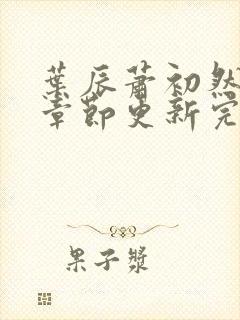 葉辰蕭初然
章節更新完
果子漿